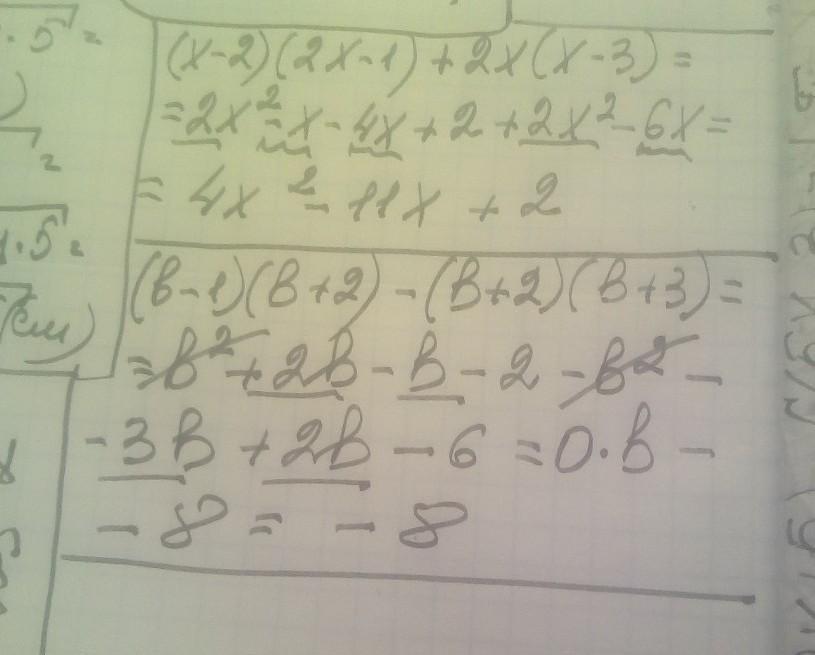 (x-2)(2x-1)+2x(x-3)=
=2x²-x-4x+2+2x²-6x=
=4x²-11x+2
(b-1)(b+2)-(b+2)(b+3)=
=b²+2b-b-2-b²-
-3b+2b-6=0·b-
-8=-8
·5=
5=
см)